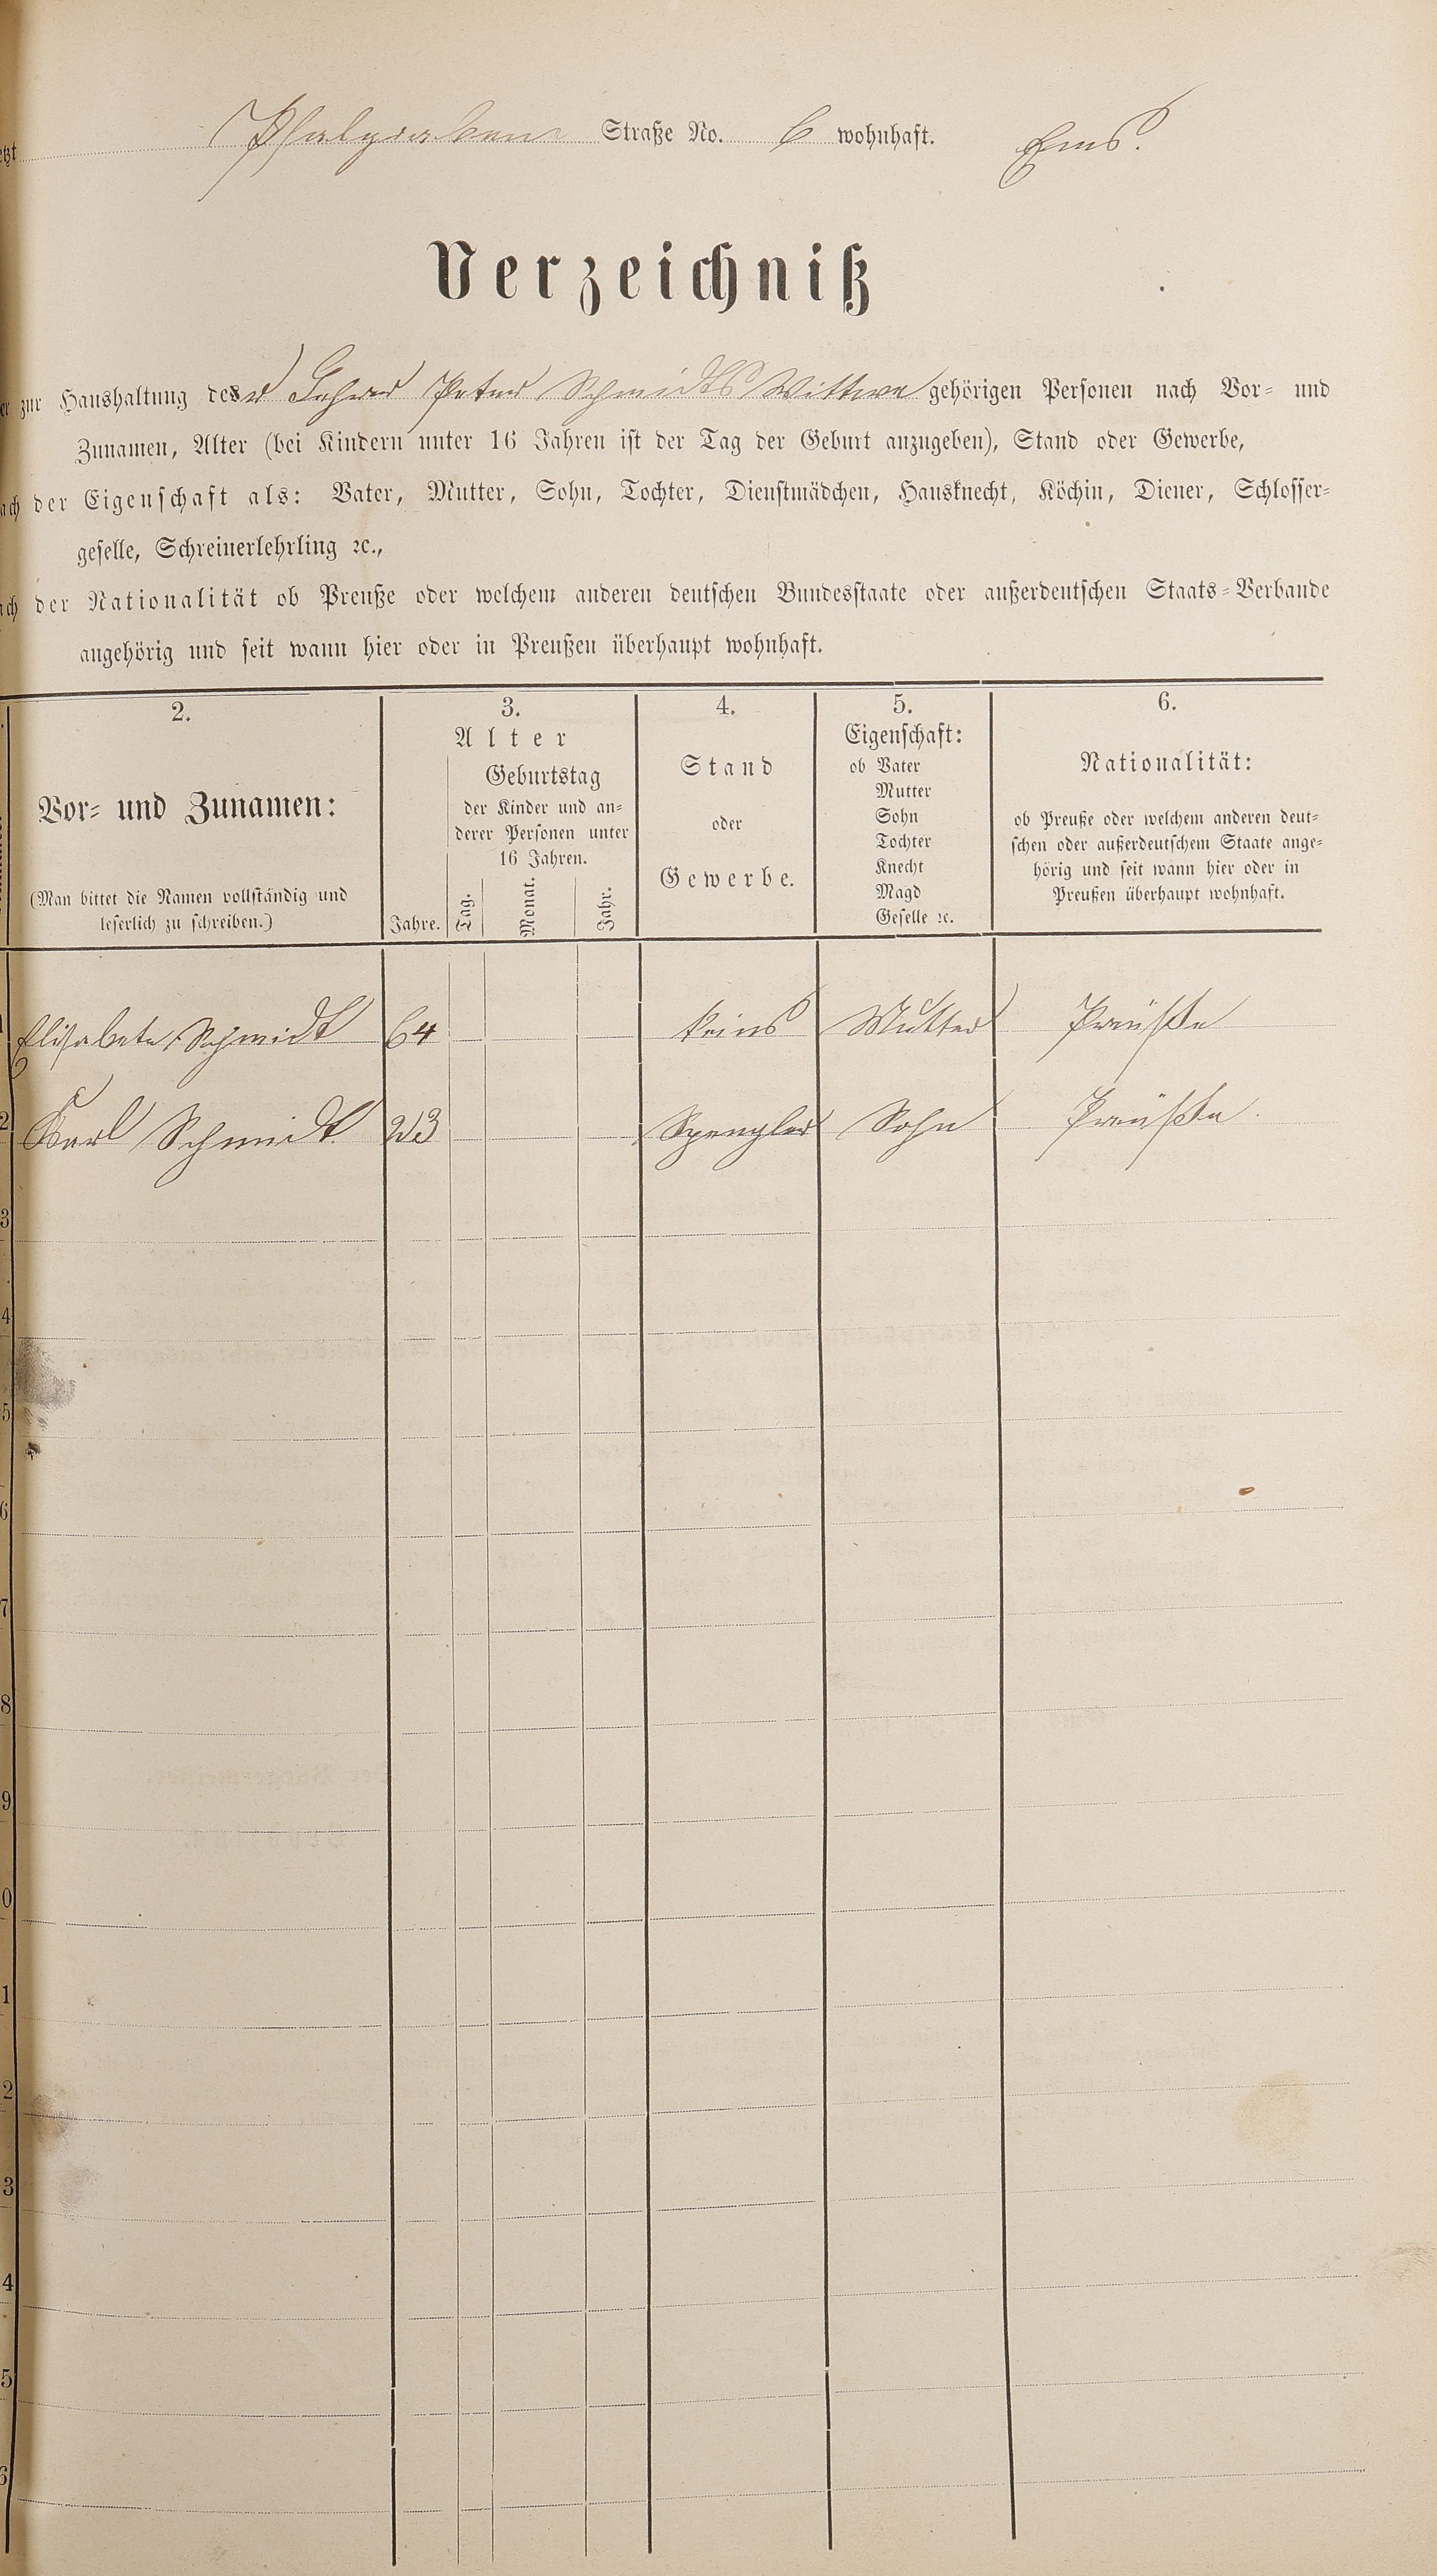 etzt Pfalgraben Straße No. 6 wohnhaft. Ems.
Verzeichniß
er zur Haushaltung des r Peter Schmidts Wittwe gehörigen Personen nach Vor- und
Zunamen, Alter (bei Kindern unter 16 Jahren ist der Tag der Geburt anzugeben), Stand oder Gewerbe,
ach der Eigenschaft als: Vater, Mutter, Sohn, Tochter, Dienstmädchen, Hausknecht, Köchin, Diener, Schlosser-
geselle, Schreinerlehrling ꝛc.,
ach der Nationalität ob Preuße oder welchem anderen deutschen Bundesstaate oder außerdeutschen Staats-Verbande
angehörig und seit wann hier oder in Preußen überhaupt wohnhaft.
2.
Vor- und Zunamen:
(Man bittet die Namen vollständig und
leserlich zu schreiben.)
3.
Alter
Geburtstag
der Kinder und an-
derer Personen unter
16 Jahren.
Jahre.
Tag.
Monat.
Jahr.
4.
Stand
oder
Gewerbe.
5.
Eigenschaft:
ob Vater
Mutter
Sohn
Tochter
Knecht
Magd
Geselle ꝛc.
6.
Nationalität:
ob Preuße oder welchem anderen deut-
schen oder außerdeutschem Staate ange-
hörig und seit wann hier oder in
Preußen überhaupt wohnhaft.
1 Elisabete Schmidt 64 keins Mutter Preußte
2 Karl Schmidt 23 Spengler Sohn Preußte
3
4
5
6
7
8
9
0
1
2
3
4
5
6